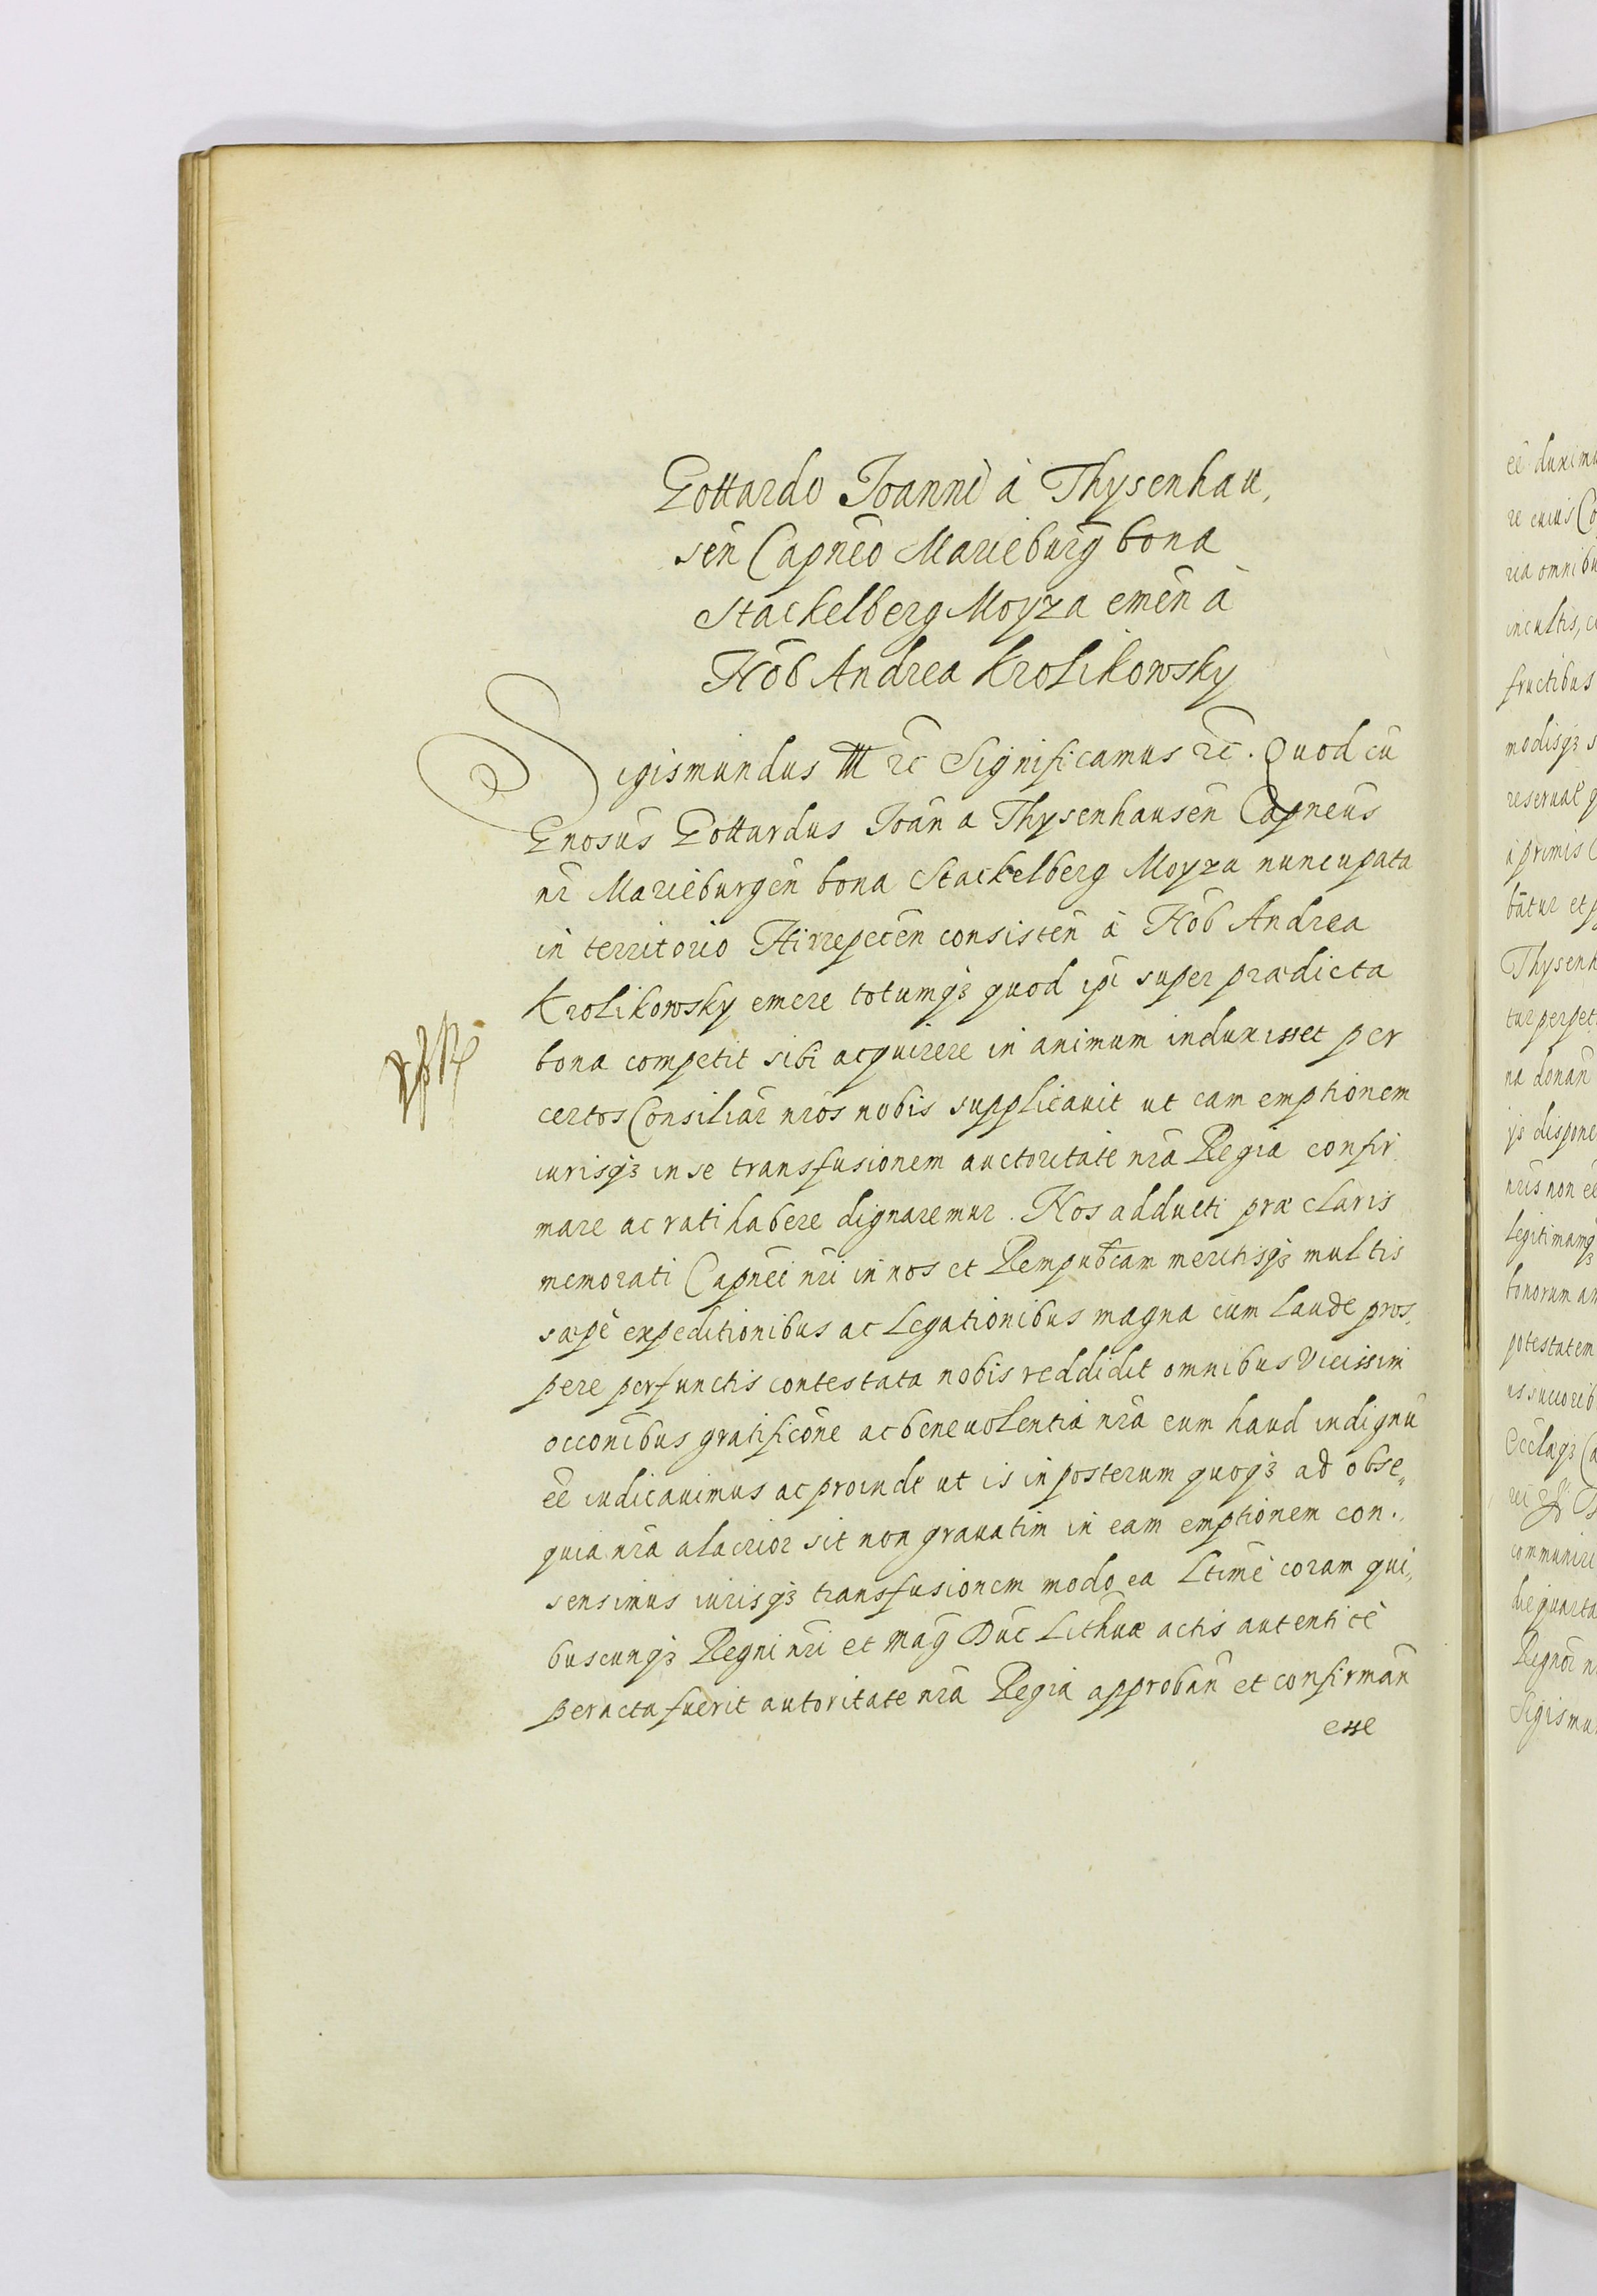 Gottardo Joanni à Thysenhau,
sen̄ Capn̄eo Marieburḡ bona
Stackelberg Moyza emēn à
Nōb Andrea Krolikowsky
Sigismundus III r̄c Significamus r̄c. Quod cū
Gnosus Gottardus Joan̄ a Thysenhausen̄ Capneūs
nr̄ Marieburgen̄ bona Stackelberg Moyza nuncupata
in territorio Kirrepecēn consisten̄ à Nōb Andrea
Krolikowsky emere totumqꝫ quod ip̄i super prædicta
bona competit sibi acquirere in animum induxisset per
certos Consiliar̄ nr̄os nobis supplicauit ut eam emptionem
iurisqꝫ in se transfusionem auctoritate nr̄a Regia confir
mare ac rati habere dignaremur. Nos adducti præclaris
memorati Capn̄ei nr̄i in nos et Rempub̄cam meritisqꝫ multis
sæpè expeditionibus ac Legationibus magna cum laude pros,
pere perfunctis contestata nobis reddidit omnibus Vicissim
occōnibus gratificōne ac beneuolentia nr̄a eum haud indignū
ēē iudicauimus ac proinde ut is in posterum quoqꝫ ad obse„
quia nr̄a alacrior sit non grauatim in eam emptionem con.
sensimus iurisqꝫ transfusionem modo ea Ltīmè coram qui,
buscunqꝫ Regni nr̄i et Maḡ Duc̄ Lithuæ actis autenticè
peracta fuerit autoritate nr̄a Regia approban̄ et confirman̄
esse
ēē duxim
re cuius Co
ria omnibu
incultis, c
fructibus
modisqꝫ s
reseruat q
à primis
bātur et p
Thysenh
tur perpet
na donan̄
ijs dispone
nr̄is non ēē
legitimamqꝫ
bonorum an
potestatem
us succorib
Eccl̄aqꝫ Ca
communiri
die quarta
Regnōr n
Sigismu